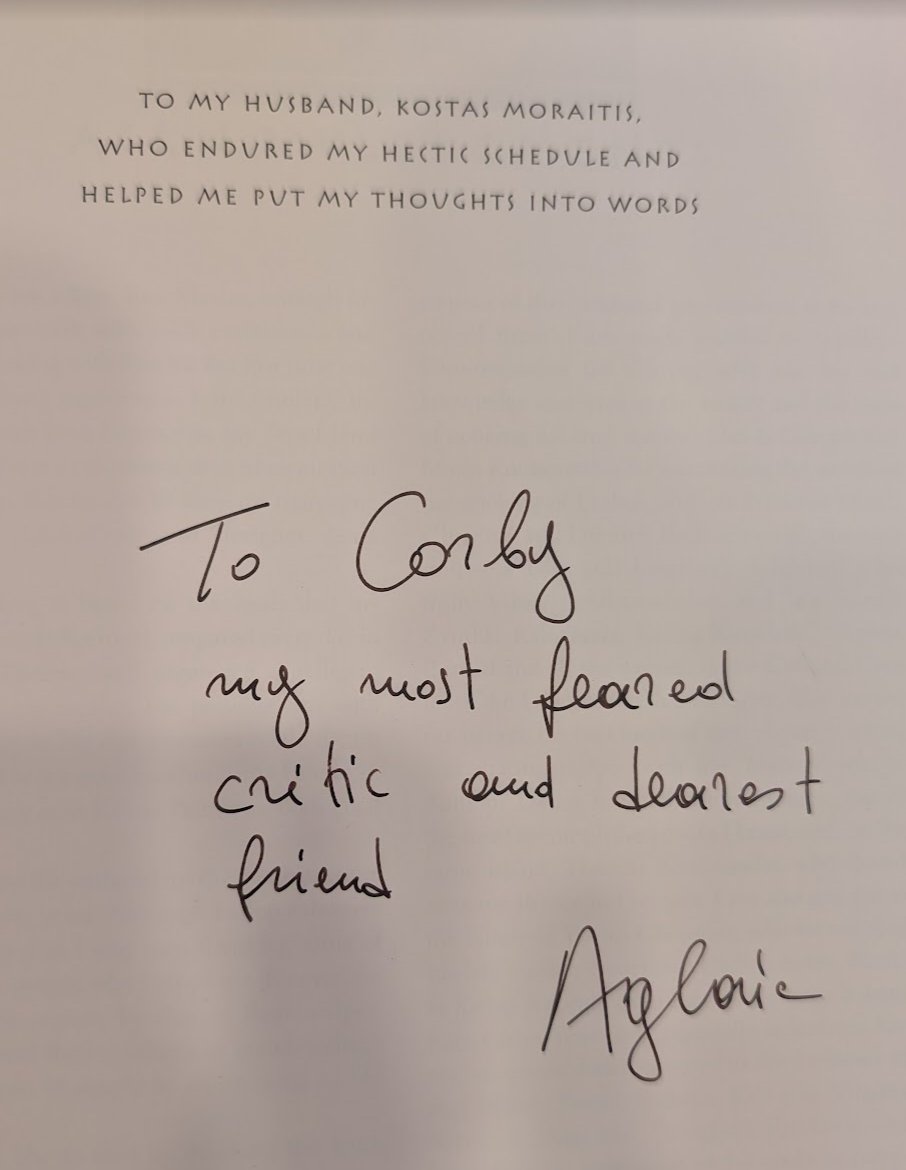 TO MY HUSBAND, KOSTAS MORAITIS,
WHO ENDURED MY HECTIC SCHEDULE AND
HELPED ME PUT MY THOUGHTS INTO WORDS
To Corby
my most feared
critic and dearest
friend
Aglaia